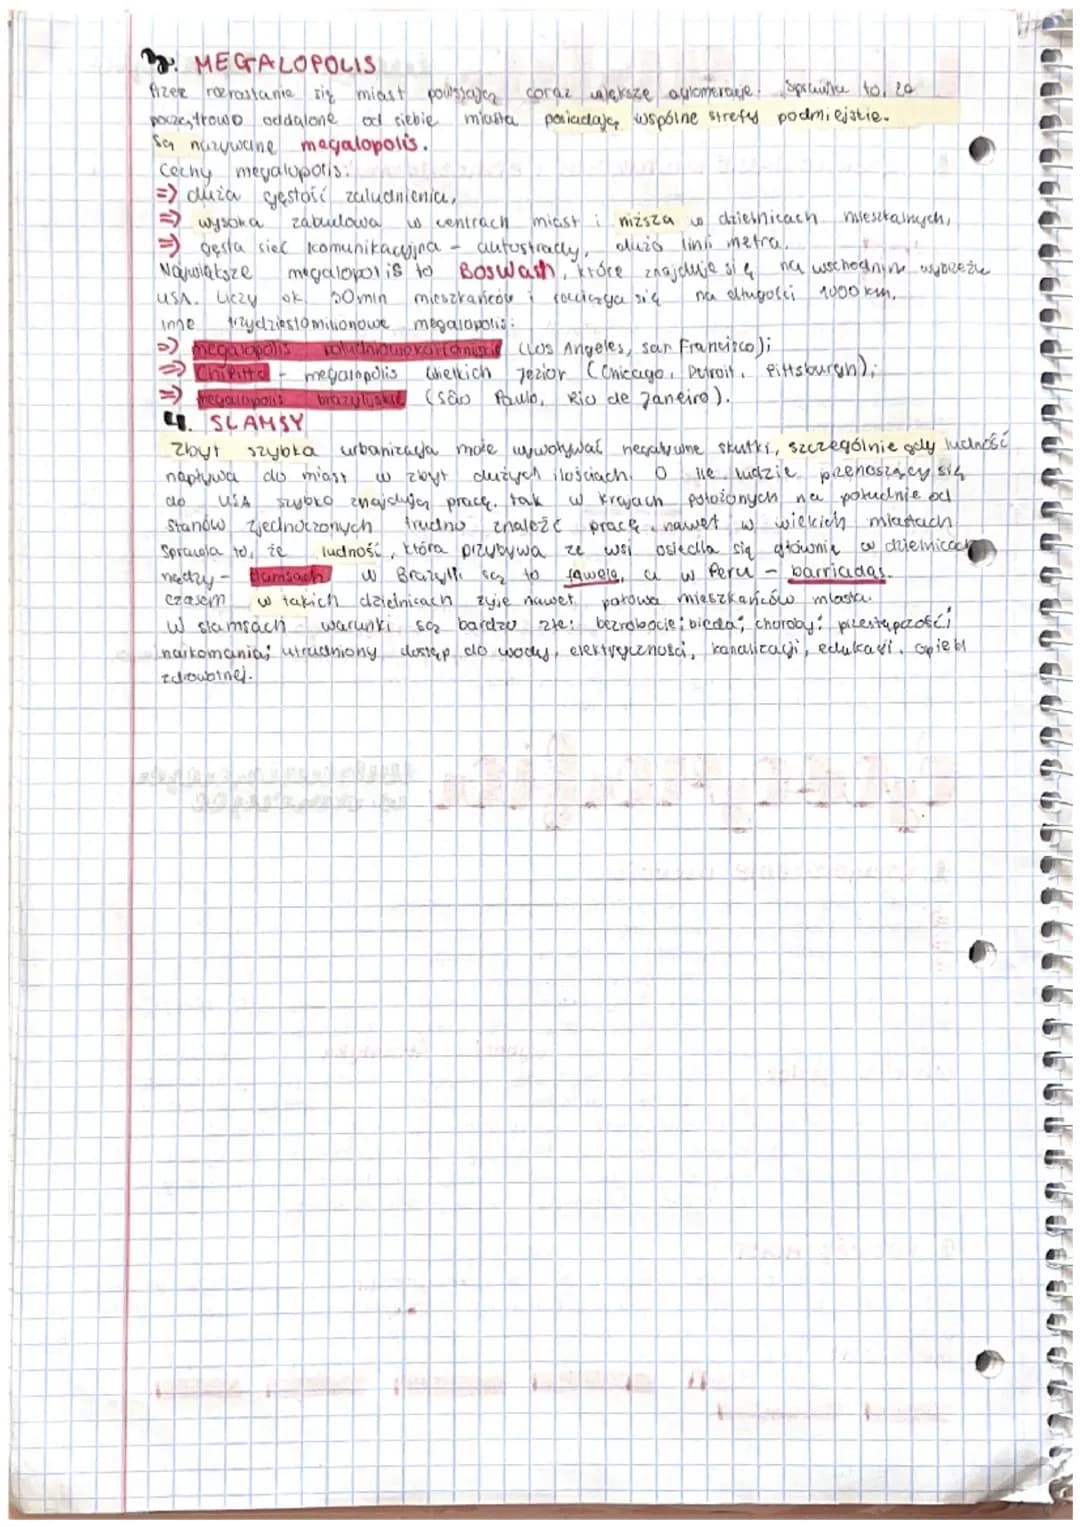 3. MEGALOPOLIS
Przez rozrastanie się miast powstają coraz większe aglomeracje. Sprawia to, że
początkowo oddalone od siebie miasta posiadają wspólne strefy podmiejskie.
Są nazywane megalopolis.
Cechy megalopolis:
=> duża gęstość zaludnienia,
=> wysoka zabudowa w centrach miast i niższa w dzielnicach mieszkalnych,
=> gęsta sieć komunikacyjna - autostrady, dużo linii metra.
Największe megalopolis to BosWash, które znajduje się na wschodnim wybrzeżu
USA. Liczy ok. 50 mln mieszkańców i rozciąga się na długości 1000 km.
Inne trzydziestomilionowe megalopolis:
=> megalopolis południowokalifornijskie (Los Angeles, San Francisco);
=> ChiPitts - megalopolis Wielkich Jezior (Chicago, Detroit, Pittsburgh);
=> megalopolis brazylijskie (São Paulo, Rio de Janeiro).
4. SLAMSY
Zbyt szybka urbanizacja może wywoływać negatywne skutki, szczególnie gdy ludność
napływa do miast w zbyt dużych ilościach. O ile ludzie przenoszący się
do USA szybko znajdują pracę, tak w krajach położonych na południe od
Stanów Zjednoczonych trudno znaleźć pracę, nawet w wielkich miastach.
Sprawia to, że ludność, która przybywa ze wsi osiedla się głównie w dzielnicach
nędzy - slamsach. W Brazylii są to fawele, a w Peru - barriadas.
Czasem w takich dzielnicach żyje nawet połowa mieszkańców miasta.
W slamsach warunki są bardzo złe: bezrobocie; bieda; choroby; przestępczość;
narkomania; utrudniony dostęp do wody, elektryczności, kanalizacji, edukacji, opieki
zdrowotnej.